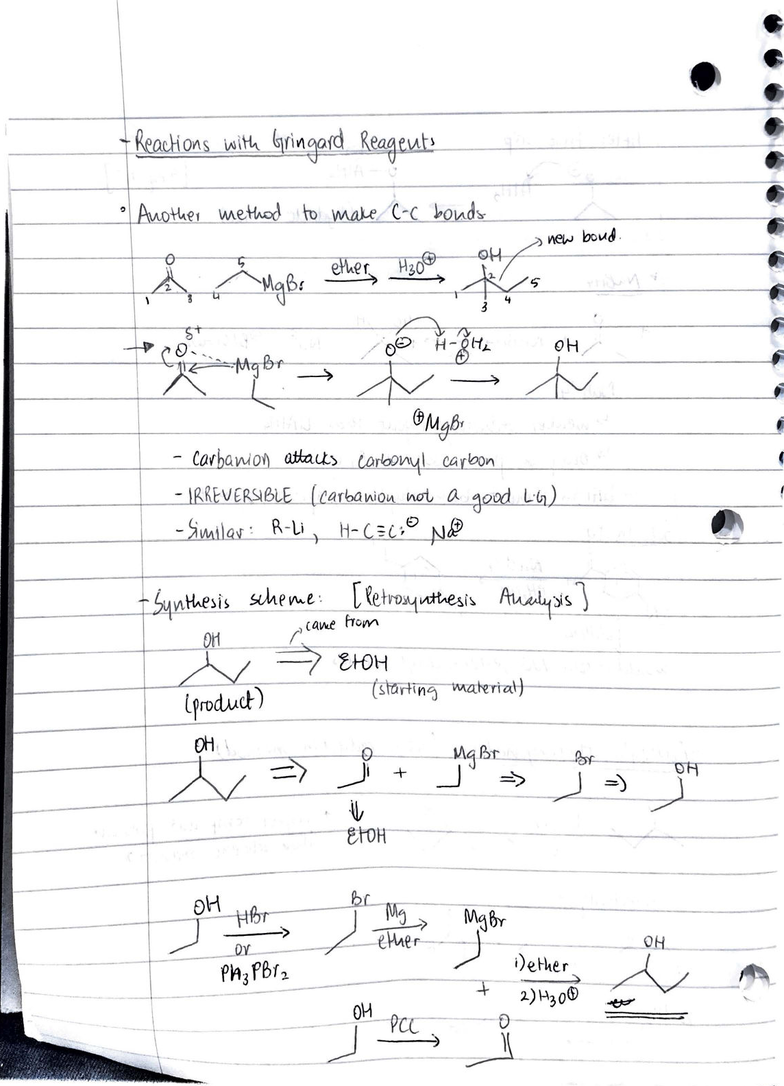 - Reactions with Gringard Reagents
° Another method to make C-C bonds
→ new bond.
O 5 ether H3O⊕ OH
1 2 3 4 MgBr 1 2 3 4 5
δ+
O MgBr O⊖ H-OH2 ⊕ OH
⊕MgBr
- Carbanion attacks carbonyl carbon
- IRREVERSIBLE (carbanion not a good LG)
- Similar: R-Li, H-C≡C:⊖ Na⊕
- Synthesis scheme: [Retrosynthesis Analysis]
came from
OH ⇒ EtOH
(product) (starting material)
OH ⇒ O + MgBr ⇒ Br ⇒ OH
⇓
EtOH
OH HBr Br Mg MgBr
or ether
Ph3PBr2
+ 1) ether OH
2) H3O⊕
OH PCC → O